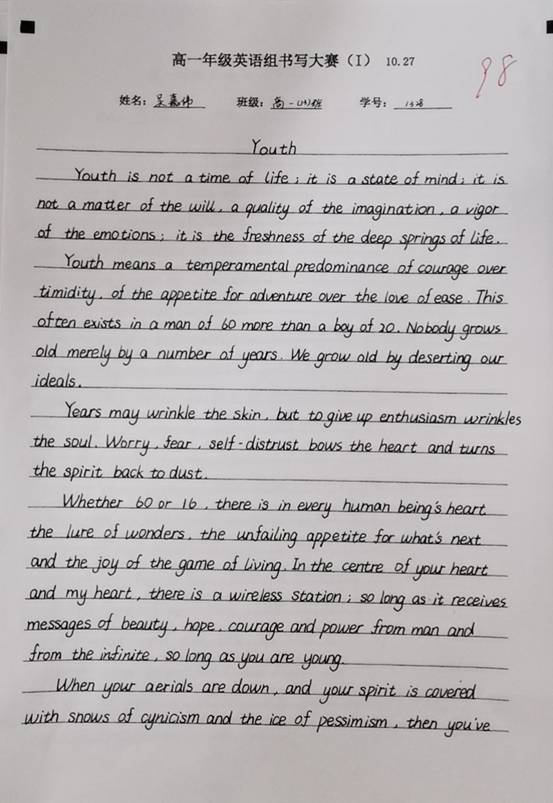 高一年级英语组书写大赛(I) 10.27
98
姓名: 吴嘉伟 班级: 高一 班 学号:
Youth
Youth is not a time of life; it is a state of mind; it is
not a matter of the will, a quality of the imagination, a vigor
of the emotions; it is the freshness of the deep springs of life.
Youth means a temperamental predominance of courage over
timidity, of the appetite for adventure over the love of ease. This
often exists in a man of 60 more than a boy of 20. Nobody grows
old merely by a number of years. We grow old by deserting our
ideals.
Years may wrinkle the skin, but to give up enthusiasm wrinkles
the soul. Worry, fear, self-distrust bows the heart and turns
the spirit back to dust.
Whether 60 or 16, there is in every human being's heart
the lure of wonders, the unfailing appetite for what's next
and the joy of the game of living. In the centre of your heart
and my heart, there is a wireless station; so long as it receives
messages of beauty, hope, courage and power from man and
from the infinite, so long as you are young.
When your aerials are down, and your spirit is covered
with snows of cynicism and the ice of pessimism, then you've